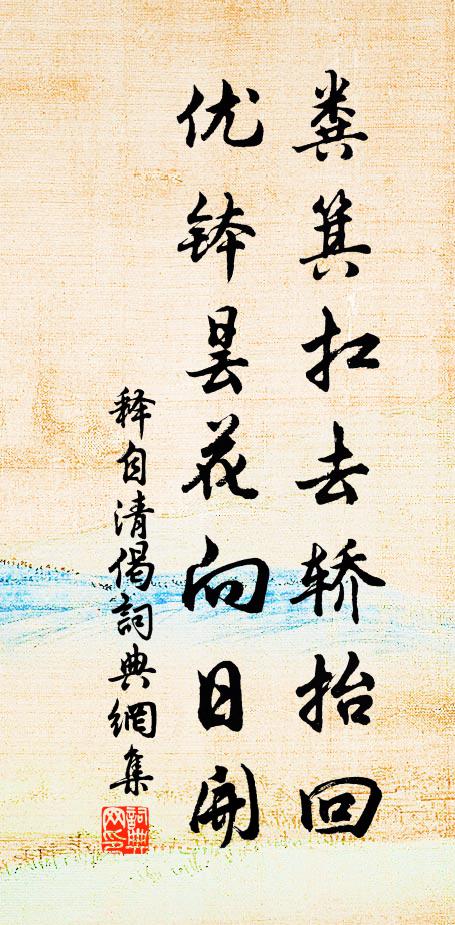 粪箕扛去轿抬回
优钵昙花向日开
释自清偈詞典網集
詞典网印